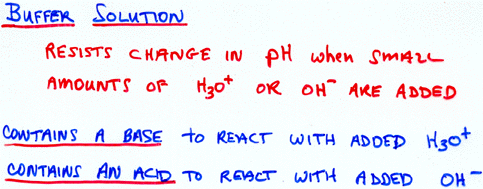 BUFFER SOLUTION
RESISTS CHANGE IN pH WHEN SMALL
AMOUNTS OF H₃O⁺ OR OH⁻ ARE ADDED
CONTAINS A BASE TO REACT WITH ADDED H₃O⁺
CONTAINS AN ACID TO REACT WITH ADDED OH⁻